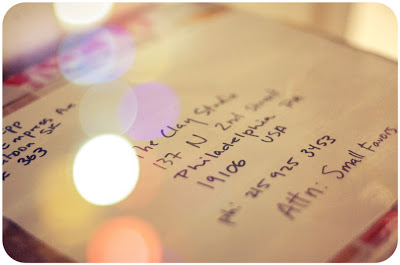 PP
Empress Ave
atoon SK
363
The Clay Studio
137 N 2nd Street
Philadelphia PA
19106 USA
ph: 215 925 3453
Attn: Small Favors